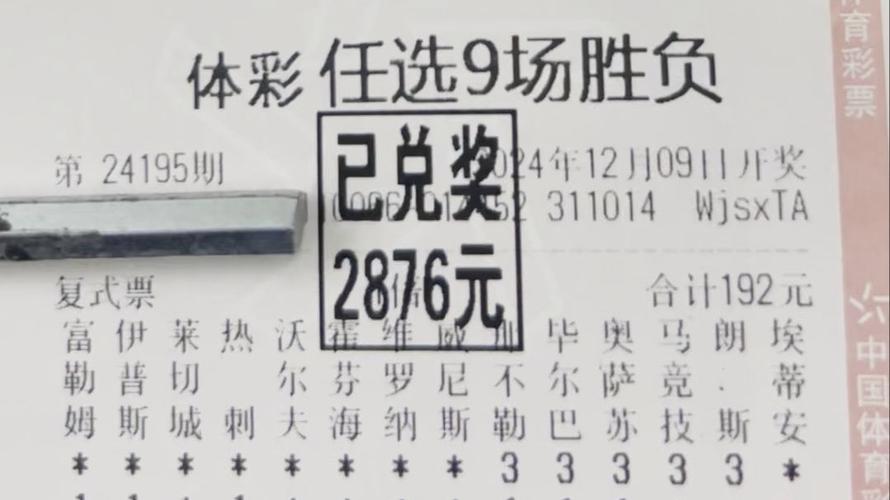 体彩 任选9场胜负
已兑奖
2876元
第 24195期
2024年12月09日开奖
311014 WjsxTA
复式票
合计192元
富勒姆
伊普斯
莱切城
热刺
沃尔夫
霍芬海
维罗纳
威尼斯
那不勒
毕尔巴
奥萨苏
马竞技
朗.斯
埃蒂安
* * * * * * * * 3 3 3 3 3 *
育彩票
中国体育